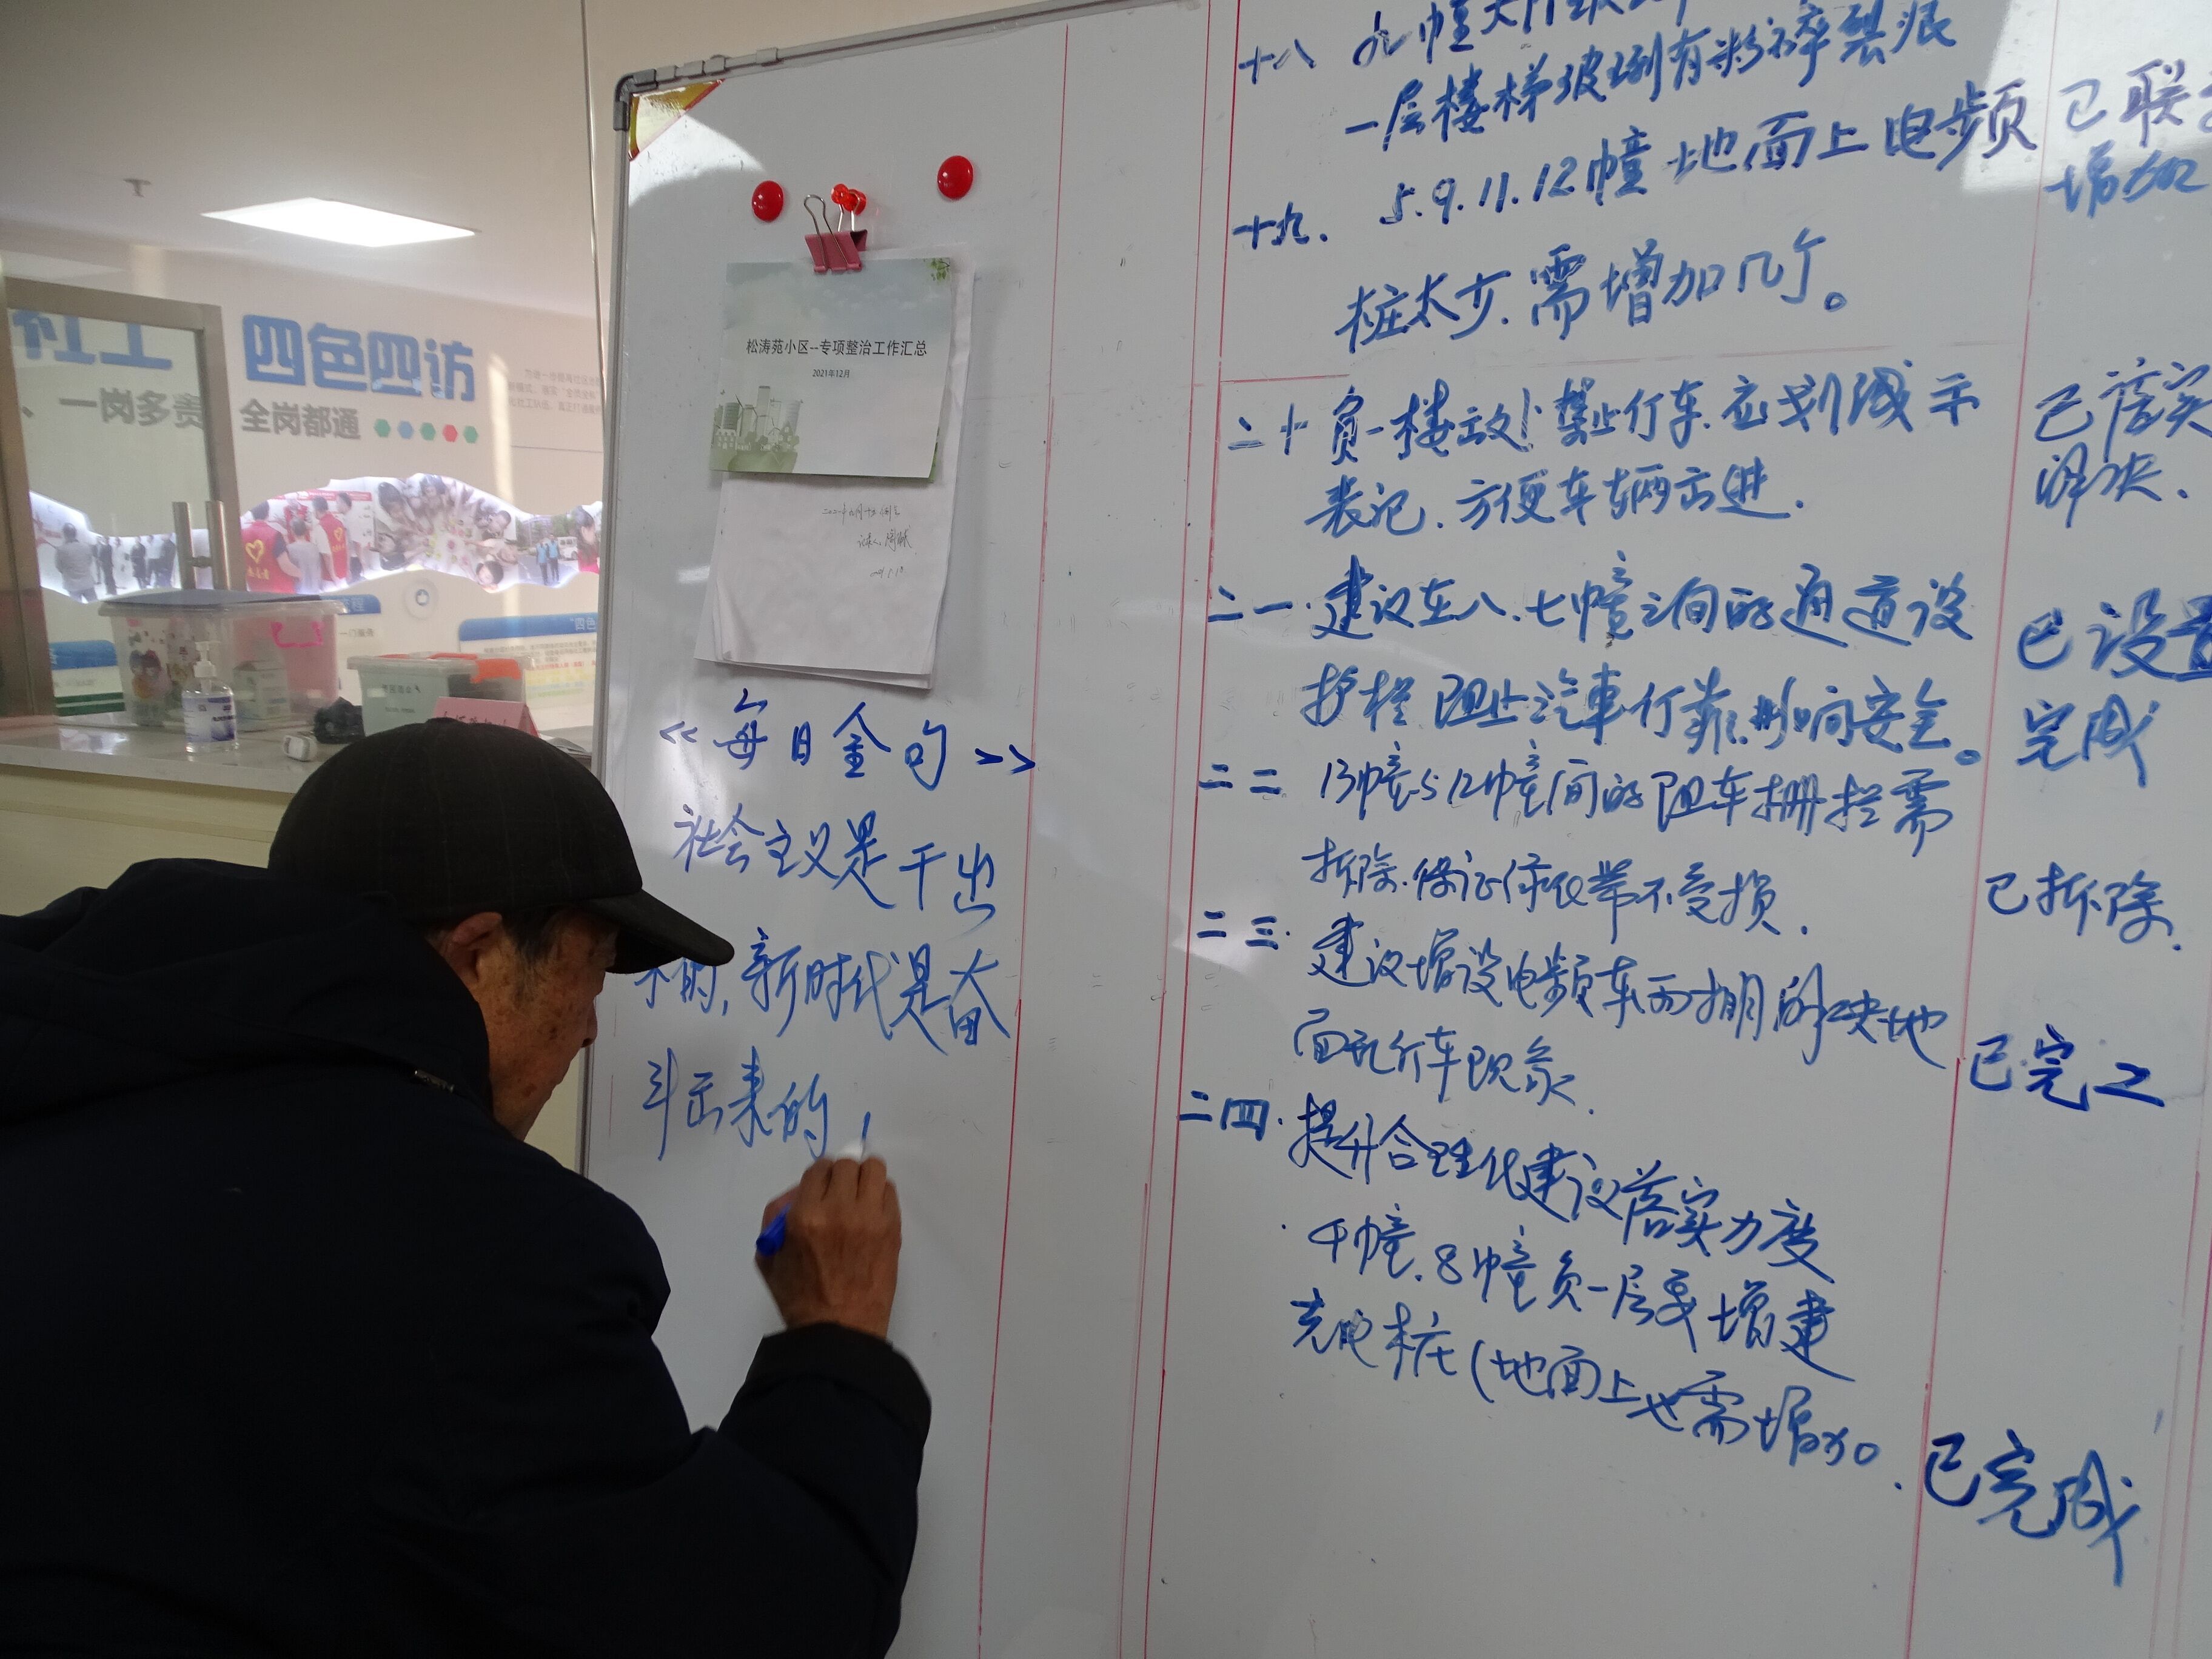 社工
四色四访
、一岗多责
全岗都通
松涛苑小区--专项整治工作汇总
2021年12月
《每日金句》
社会主义是干出
来的，新时代是奋
斗出来的！
十八 九幢大门
一层楼梯玻琍有粉碎裂痕
十九. 5.9.11.12幢地面上电频
桩太少.需增加几个。
已联
增加
二十 负一楼 禁止行车.应划减示
表记.方便车辆出进.
已落实
解决.
二一.建议在八.七幢之间的通道设
护栏阻止汽車行靠.影响安全。
已设置
完成
二二 13幢与12幢间的阻车栅拦需
拆除.保证绿化带不受损.
已拆除.
二三.建议增设电频车雨棚解决地
面乱行车现象.
已完工
二四.提升合理化建议落实力度
4幢.8幢负一层要增建
充电桩(地面上也需增加.
已完成